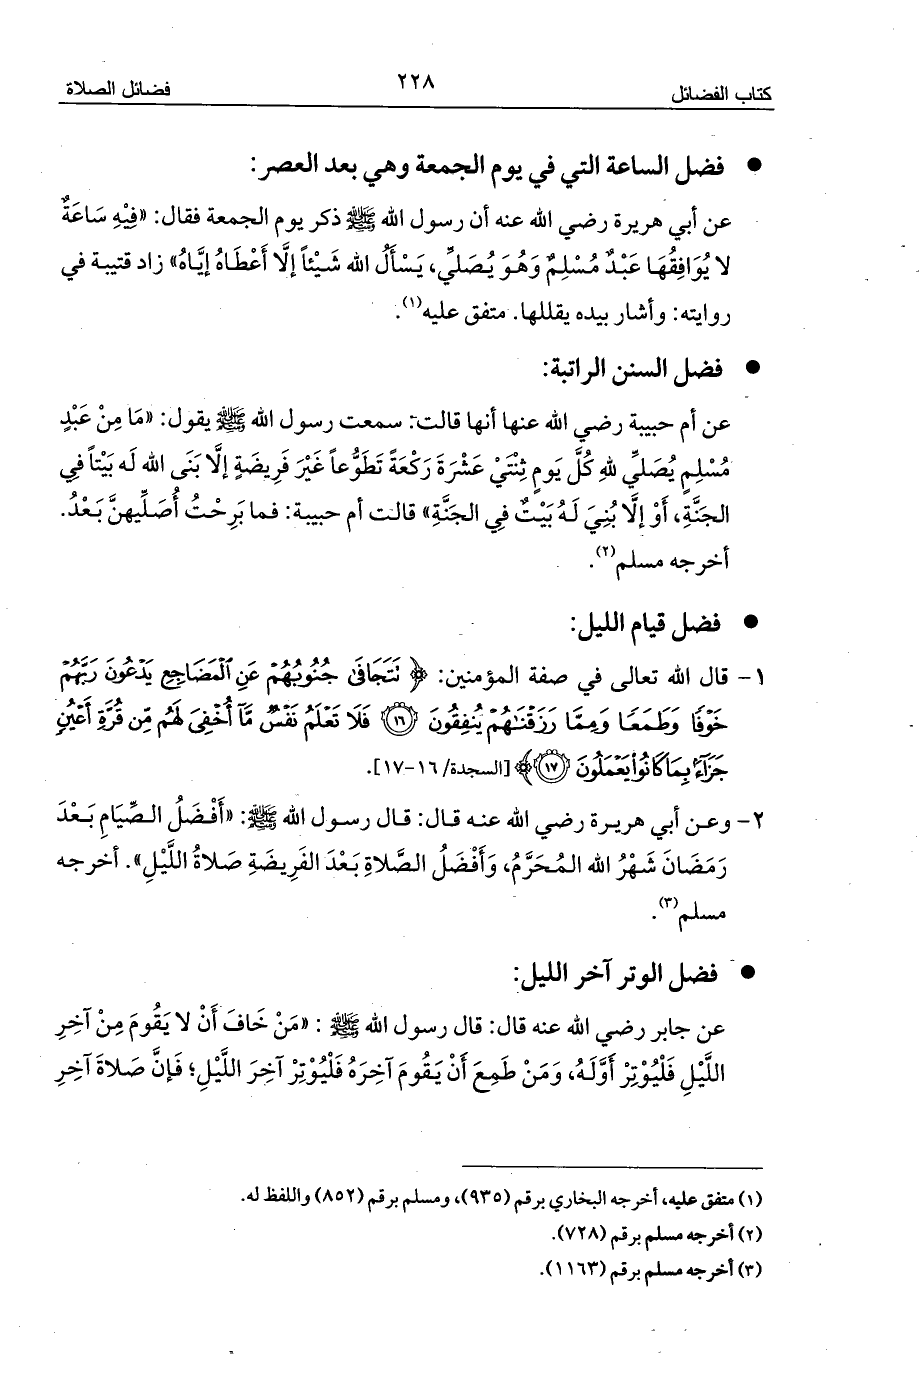 كتاب الفضائل ٢٢٨ فضائل الصلاة
● فضل الساعة التي في يوم الجمعة وهي بعد العصر:
عن أبي هريرة رضي الله عنه أن رسول الله ﷺ ذكر يوم الجمعة فقال: «فِيْهِ سَاعَةٌ
لا يُوَافِقُهَا عَبْدٌ مُسْلِمٌ وَهُوَ يُصَلِّي، يَسْأَلُ الله شَيْئاً إلَّا أَعْطَاهُ إيَّاهُ» زاد قتيبة في
روايته: وأشار بيده يقللها. متفق عليه(١).
● فضل السنن الراتبة:
عن أم حبيبة رضي الله عنها أنها قالت: سمعت رسول الله ﷺ يقول: «مَا مِنْ عَبْدٍ
مُسْلِمٍ يُصَلِّي لله كُلَّ يَومٍ ثِنْتَيْ عَشْرَةَ رَكْعَةً تَطَوُّعاً غَيْرَ فَرِيضَةٍ إلَّا بَنَى الله لَه بَيْتاً فِي
الجَنَّةِ، أَوْ إلَّا بُنِيَ لَهُ بَيْتٌ فِي الجَنَّةِ» قالت أم حبيبة: فما بَرِحْتُ أُصَلِّيهنَّ بَعْدُ.
أخرجه مسلم(٢).
● فضل قيام الليل:
١- قال الله تعالى في صفة المؤمنين: ﴿ نَتَجَافَىٰ جُنُوبُهُمْ عَنِ ٱلْمَضَاجِعِ يَدْعُونَ رَبَّهُمْ
خَوْفًا وَطَمَعًا وَمِمَّا رَزَقْنَٰهُمْ يُنفِقُونَ ۝١٦ فَلَا تَعْلَمُ نَفْسٌ مَّآ أُخْفِىَ لَهُم مِّن قُرَّةِ أَعْيُنٍ
جَزَآءًۢ بِمَا كَانُوا۟ يَعْمَلُونَ ۝١٧﴾ [السجدة/ ١٦-١٧].
٢- وعن أبي هريرة رضي الله عنه قال: قال رسول الله ﷺ: «أَفْضَلُ الصِّيَامِ بَعْدَ
رَمَضَانَ شَهْرُ الله المُحَرَّمُ، وَأَفْضَلُ الصَّلاةِ بَعْدَ الفَرِيضَةِ صَلاةُ اللَّيْلِ». أخرجه
مسلم(٣).
● فضل الوتر آخر الليل:
عن جابر رضي الله عنه قال: قال رسول الله ﷺ : «مَنْ خَافَ أَنْ لا يَقُومَ مِنْ آخِرِ
اللَّيْلِ فَلْيُوْتِرْ أَوَّلَهُ، وَمَنْ طَمِعَ أَنْ يَقُومَ آخِرَهُ فَلْيُوْتِرْ آخِرَ اللَّيْلِ؛ فَإنَّ صَلاةَ آخِرِ
(١) متفق عليه، أخرجه البخاري برقم (٩٣٥)، ومسلم برقم (٨٥٢) واللفظ له.
(٢) أخرجه مسلم برقم (٧٢٨).
(٣) أخرجه مسلم برقم (١١٦٣).